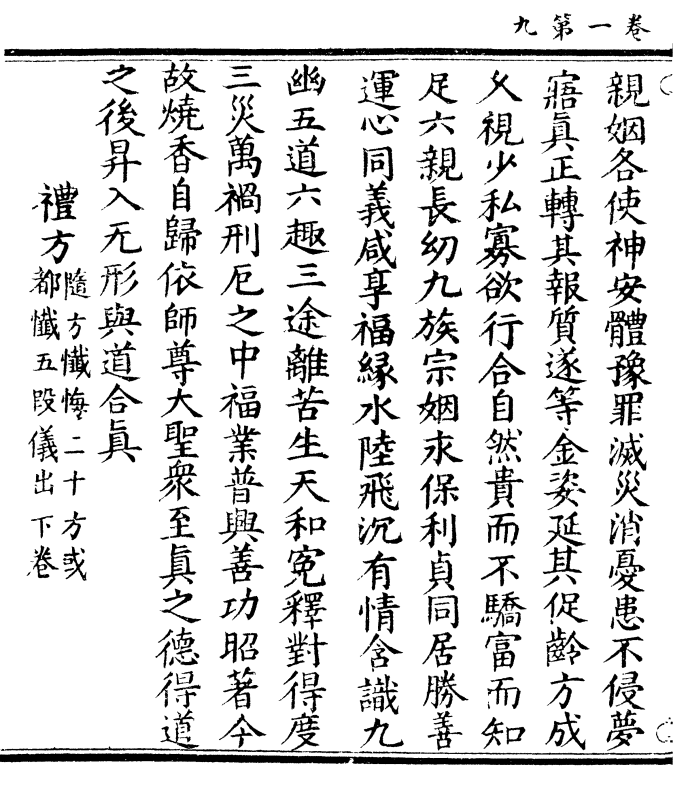 卷一第九
親姻各使神安體豫罪滅災消憂患不侵夢
寤眞正轉其報質遂等金姿延其促齡方成
久視少私寡欲行合自然貴而不驕富而知
足六親長幼九族宗姻永保利貞同居勝善
運心同義咸享福緣水陸飛沉有情含識九
幽五道六趣三途離苦生天和寃釋對得度
三災萬禍刑厄之中福業普興善功昭著今
故燒香自歸依師尊大聖衆至眞之德得道
之後昇入无形與道合眞
禮方隨方懺悔二十方或
都懺五段儀出下卷